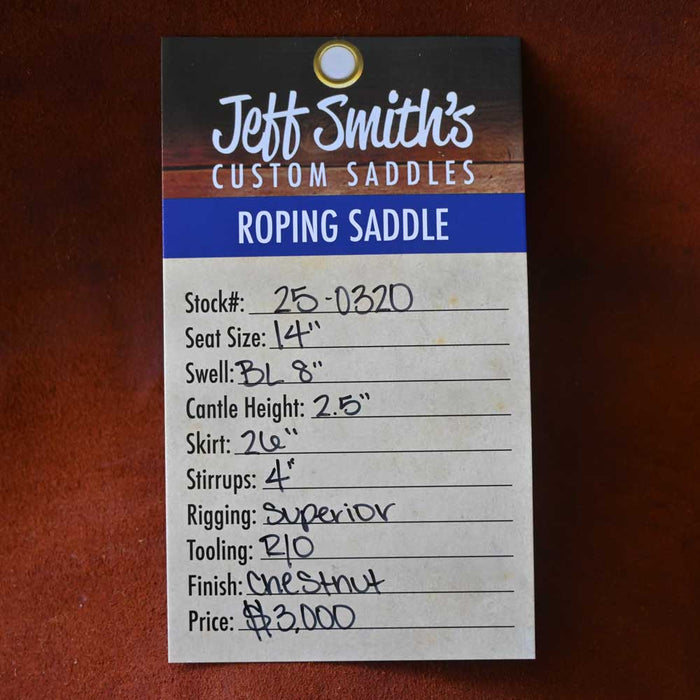 Jeff Smith's
CUSTOM SADDLES
ROPING SADDLE
Stock#: 25-0320
Seat Size: 14"
Swell: BL 8"
Cantle Height: 2.5"
Skirt: 26"
Stirrups: 4"
Rigging: Superior
Tooling: R/O
Finish: Chestnut
Price: $3,000